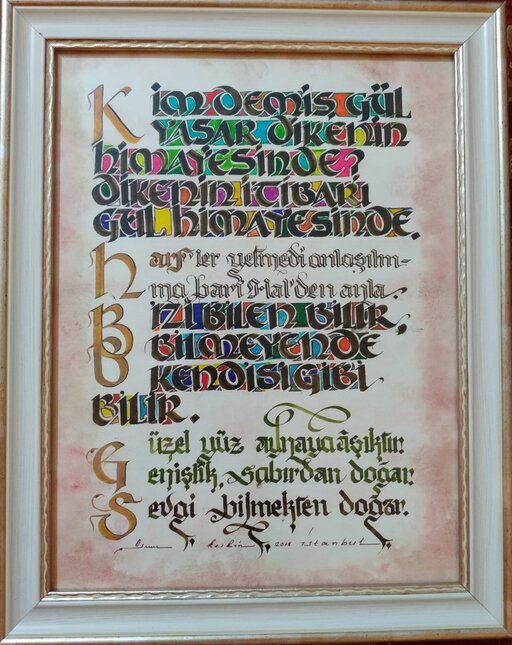 Kim Demiş Gül
Yaşar Dikenin
himayesinde?
Dikenin itibari
Gül himayesinde.
Harfler yetmedi anlaşılm-
ma, bari Hal'den anla.
Bizi Bilen Bilir,
Bilmeyende
Kendisi Gibi
Bilir.
Güzel yüz aynaya âşıktır.
Genişlik, sabırdan doğar.
Sevgi bilmekten doğar.
2018 istanbul